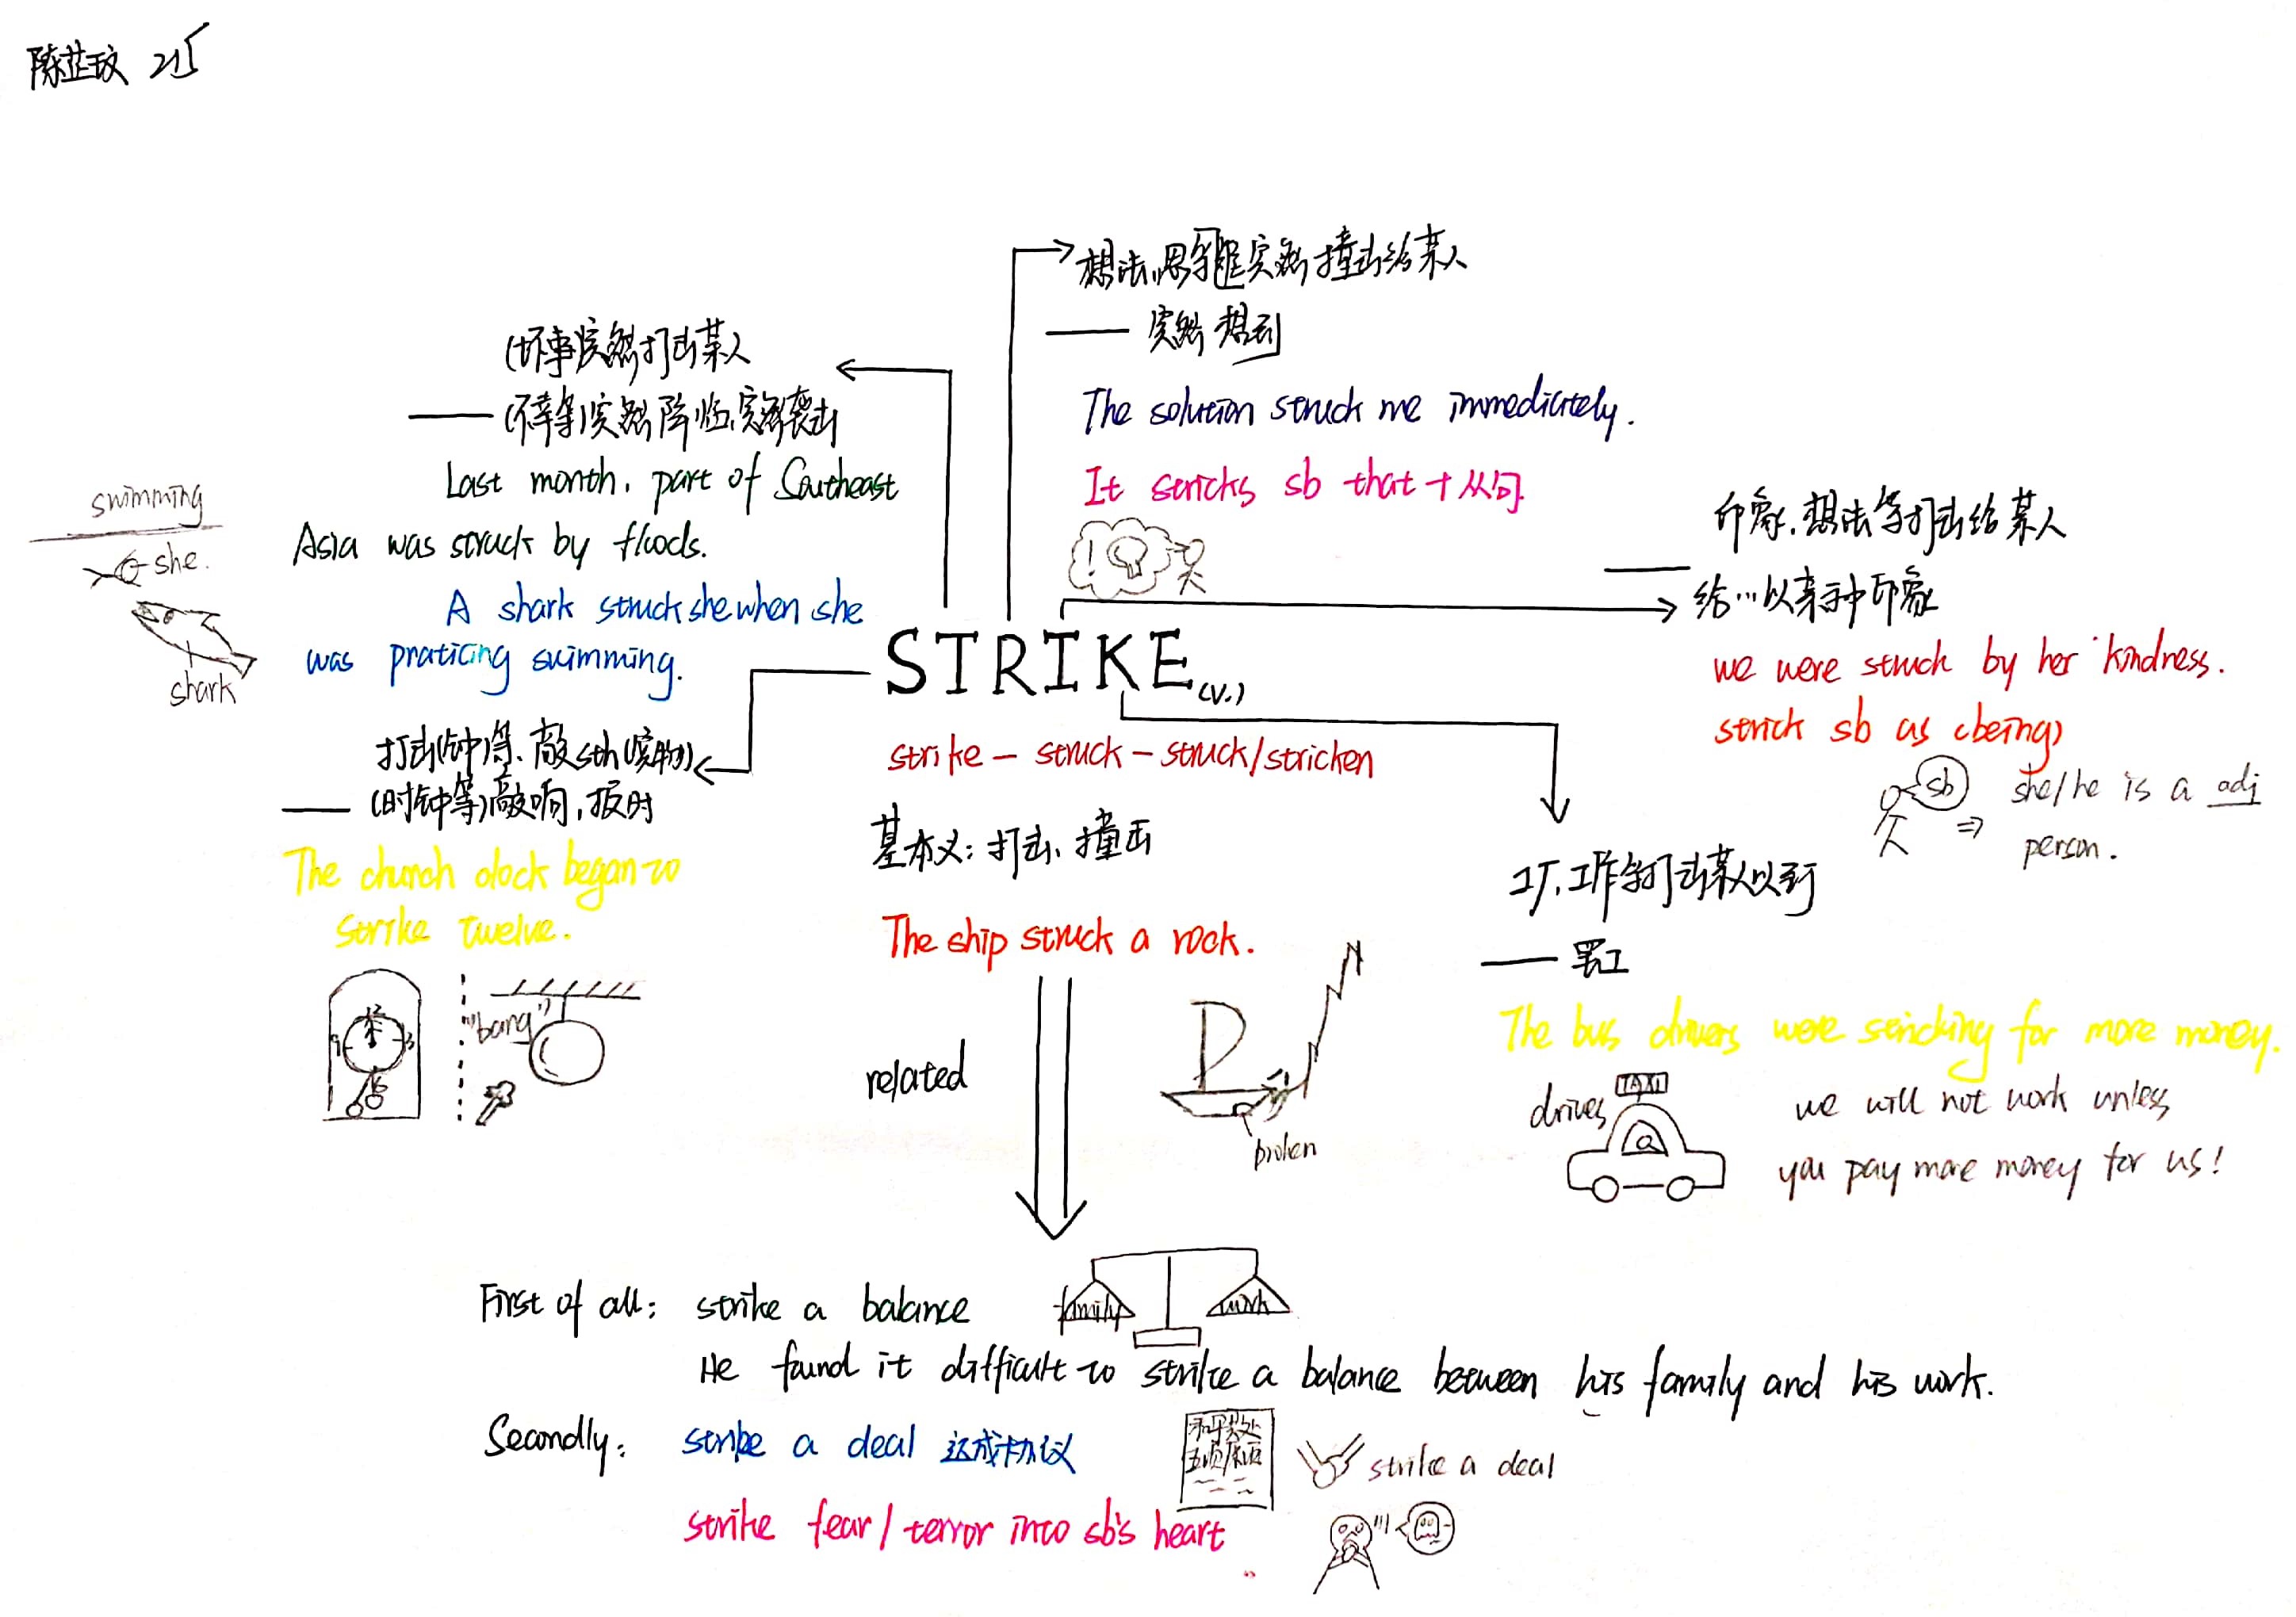 陈芷玟 215
想法,思维突然撞击给某人
—— 突然想到
The solution struck me immediately.
It stricks sb that + 从句
(坏事)突然打击某人
—— (不幸等)突然降临,突然袭击
Last month, part of Southeast
Asia was struck by floods.
A shark struck she when she
was praticing swimming.
swimming
she.
shark
印象,想法等打击给某人
—— 给…以某种印象
we were struck by her kindness.
strick sb as (being)
sb
she/he is a adj
person.
STRIKE (v.)
strike — struck — struck/stricken
基本义: 打击、撞击
The ship struck a rock.
broken
related
打击(钟)等、敲sth(实物)
—— (时钟等)敲响,报时
The church clock began to
strike twelve.
12
9
3
"bang"
工厂,工作等打击某人以到
—— 罢工
The bus drivers were stricking for more money.
TAXI
drives
we will not work unless
you pay more money for us!
First of all: strike a balance
family
work
He found it difficult to strike a balance between his family and his work.
Secondly: strike a deal 达成协议
和平共处
五项原则
strike a deal
strike fear/terror into sb's heart